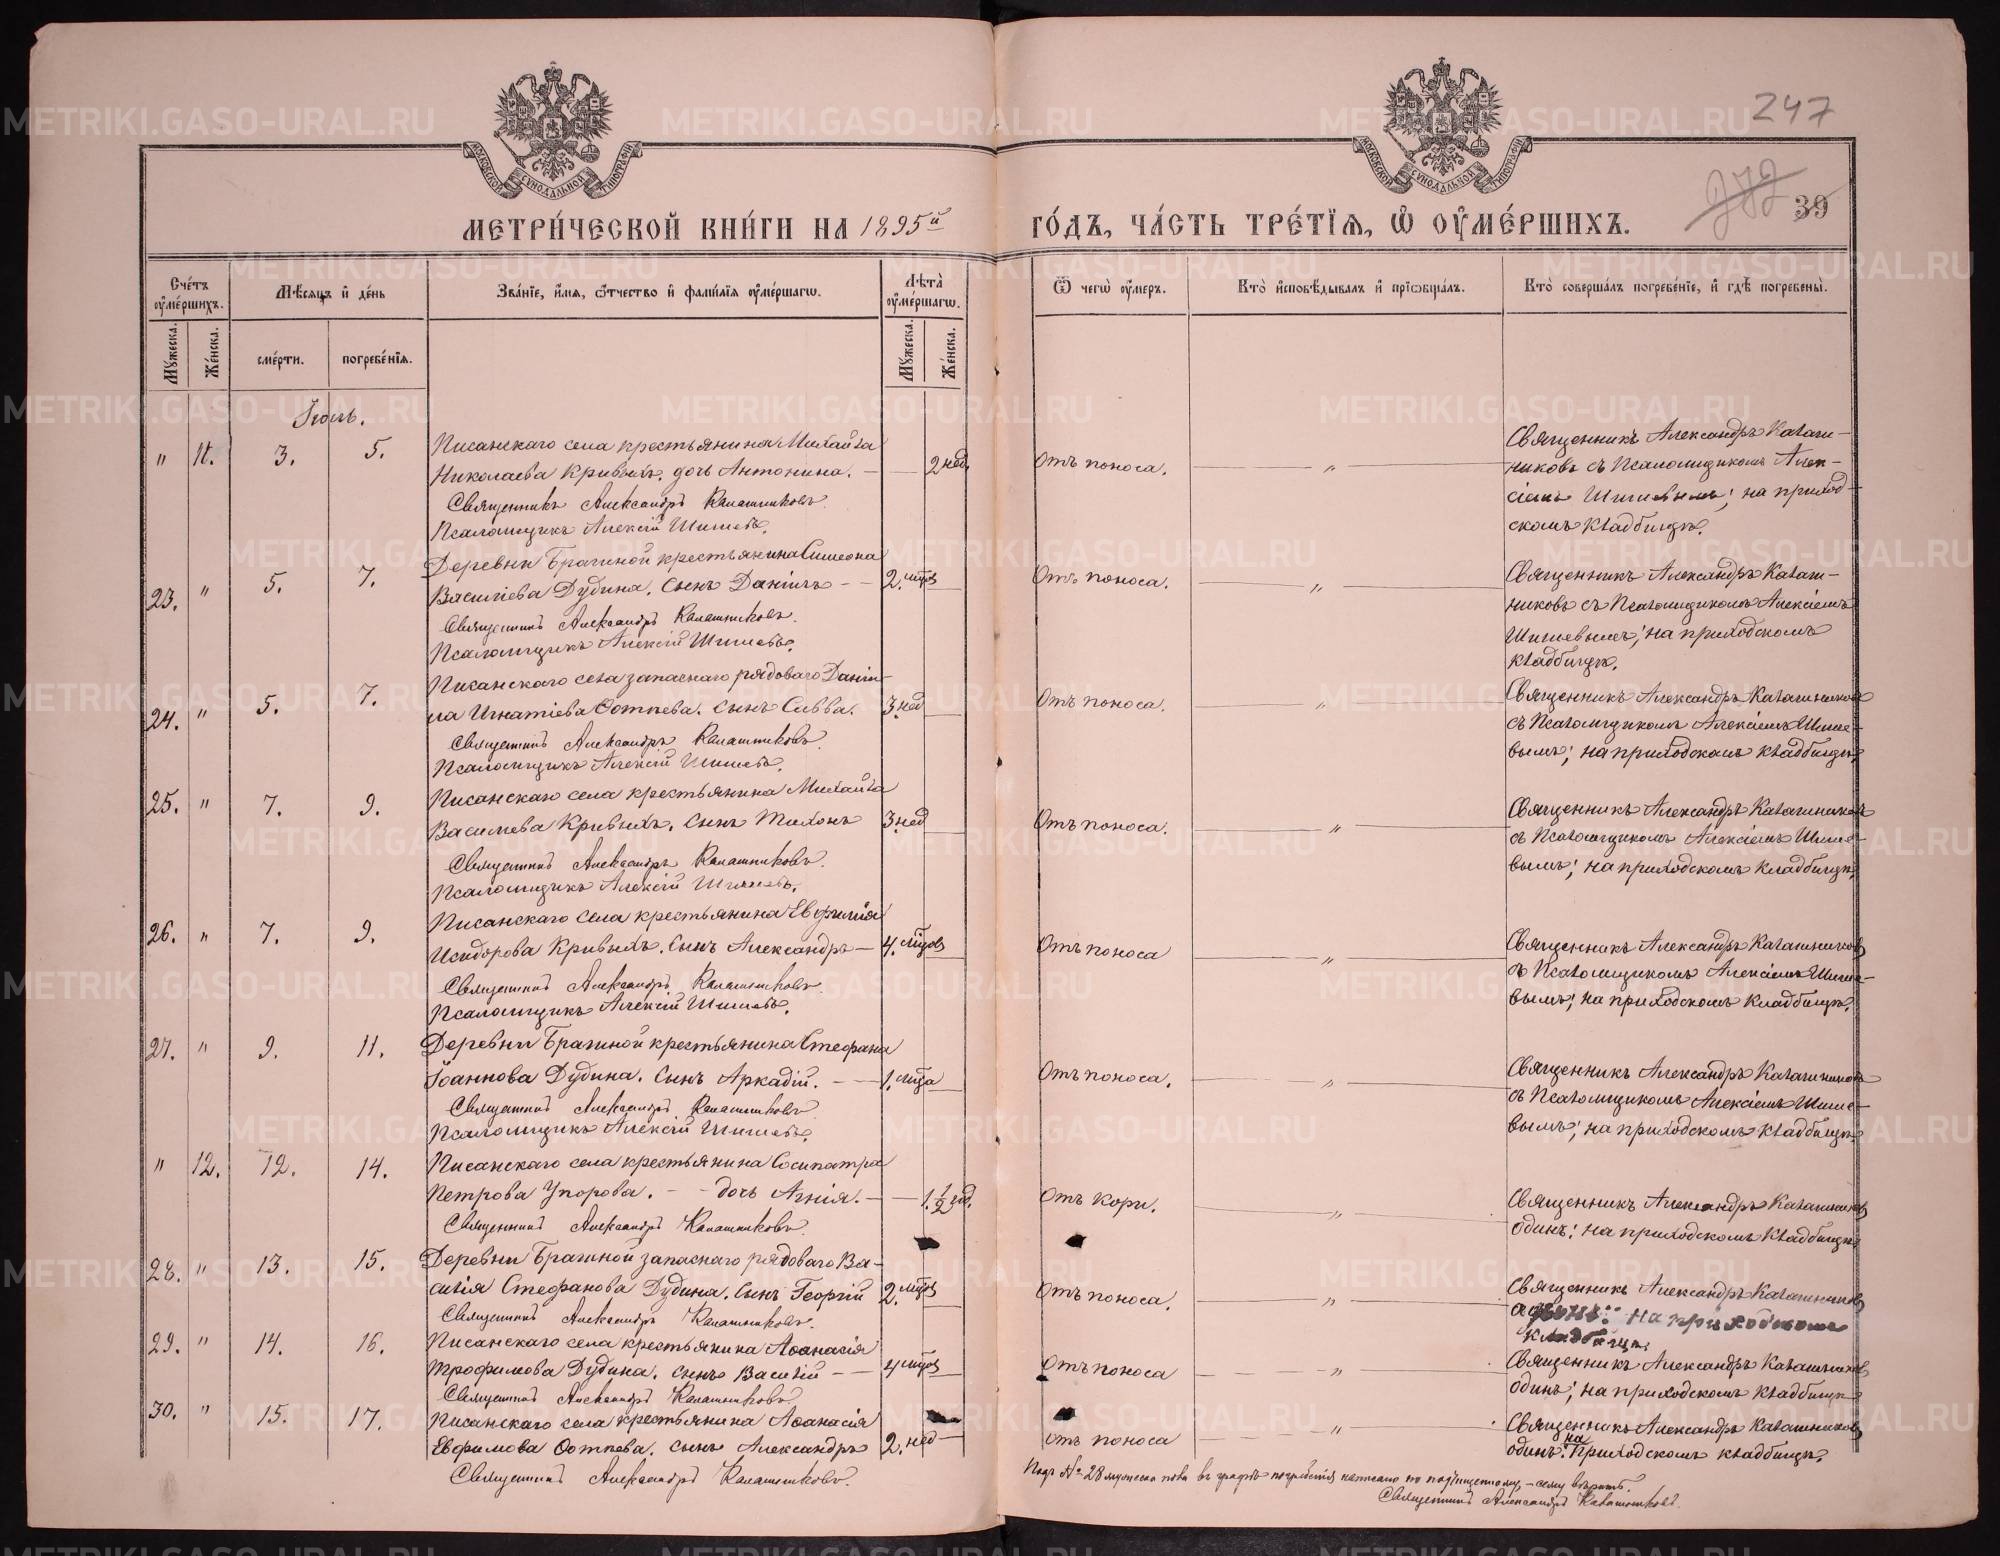 247
39
МЕТРИ́ЧЕСКОЙ КНИ́ГИ НА 1895й ГО́ДЪ, ЧА́СТЬ ТРЕ́ТІѦ, Ѡ҆ ОУ҆МЕ́РШИХЪ.
МОСКОВСКОЙ СѴНОДАЛЬНОЙ ТИПОГРАФІИ
МОСКОВСКОЙ СѴНОДАЛЬНОЙ ТИПОГРАФІИ
Сче́тъ оу҆ме́ршихъ.
Мꙋ́жеска.
Же́нска.
Мѣ́сѧцъ и҆ де́нь
сме́рти.
погребе́нїѧ.
Зва́нїе, и҆́мѧ, ѻ҆́тчество и҆ фами́лїѧ оу҆ме́ршагѡ.
Лѣ́та оу҆ме́ршагѡ.
Мꙋ́жеска.
Же́нска.
Ѿ чегѡ̀ оу҆́меръ.
Кто̀ и҆сповѣ́дывалъ и҆ прїѡбща́лъ.
Кто̀ соверша́лъ погребе́нїе, и҆ гдѣ̀ погребены̀.
Іюль.
" 11. 3. 5. Писанскаго села крестьянина Михаила
Николаева Кривыхъ, дочь Антонина. — 2 нед. Отъ поноса. "
Священникъ Александръ Калашниковъ.
Псаломщикъ Алексій Шишевъ.
Священникъ Александръ Калаш-
никовъ съ Псаломщикомъ Алек-
сіемъ Шишевымъ; на приход-
скомъ кладбищѣ.
23. " 5. 7. Деревни Брагиной крестьянина Симеона
Василіева Дудина, сынъ Даніилъ — 2. мѣс Отъ поноса. "
Священникъ Александръ Калашниковъ.
Псаломщикъ Алексій Шишевъ.
Священникъ Александръ Калаш-
никовъ съ Псаломщикомъ Алексіемъ
Шишевымъ; на приходскомъ
кладбищѣ.
24. " 5. 7. Писанскаго села запаснаго рядоваго Даніи-
ла Игнатіева сынъ Савва. 3. нед Отъ поноса. "
Священникъ Александръ Калашниковъ.
Псаломщикъ Алексій Шишевъ.
Священникъ Александръ Калашниковъ
съ Псаломщикомъ Алексіемъ Шише-
вымъ; на приходскомъ кладбищѣ.
25. " 7. 9. Писанскаго села крестьянина Михаила
Василіева Кривыхъ, сынъ Тихонъ 3. нед Отъ поноса. "
Священникъ Александръ Калашниковъ.
Псаломщикъ Алексій Шишевъ.
Священникъ Александръ Калашниковъ
съ Псаломщикомъ Алексіемъ Шише-
вымъ; на приходскомъ кладбищѣ.
26. " 7. 9. Писанскаго села крестьянина Евфимія
Исидорова Кривыхъ, сынъ Александръ — 4. Отъ поноса "
Священникъ Александръ Калашниковъ.
Псаломщикъ Алексій Шишевъ.
Священникъ Александръ Калашниковъ
съ Псаломщикомъ Алексіемъ Шише-
вымъ; на приходскомъ кладбищѣ.
27. " 9. 11. Деревни Брагиной крестьянина Стефана
Іоаннова Дудина, сынъ Аркадій. — 1. Отъ поноса. "
Священникъ Александръ Калашниковъ
Псаломщикъ Алексій Шишевъ.
Священникъ Александръ Калашниковъ
съ Псаломщикомъ Алексіемъ Шише-
вымъ; на приходскомъ кладбищѣ.
" 12. 12. 14. Писанскаго села крестьянина Сосипатра
Петрова Упорова. — дочь Агнія. — 1 1/2 год. Отъ кори. "
Священникъ Александръ Калашниковъ
Священникъ Александръ Калашниковъ
одинъ; на приходскомъ кладбищѣ
28. " 13. 15. Деревни Брагиной запаснаго рядоваго Ва-
силія Стефанова Дудина, сынъ Георгій 2. Отъ поноса. "
Священникъ Александръ Калашниковъ.
Священникъ Александръ Калашниковъ
одинъ: на приходскомъ
кладбищѣ.
29. " 14. 16. Писанскаго села крестьянина Аѳанасія
Трофимова Дудина, сынъ Василій — 4 Отъ поноса "
Священникъ Александръ Калашниковъ
Священникъ Александръ Калашниковъ
одинъ; на приходскомъ кладбищѣ
30. " 15. 17. Писанскаго села крестьянина Аѳанасія
Евфимова сынъ Александръ 2. нед Отъ поноса "
Священникъ Александръ Калашниковъ.
Священникъ Александръ Калашниковъ
одинъ: на Приходскомъ кладбищѣ.
Подъ № 28 мужеска пола въ графѣ погребенія написано по подчищенному, — сему вѣрить.
Священникъ Александръ Калашниковъ.
METRIKI.GASO-URAL.RU